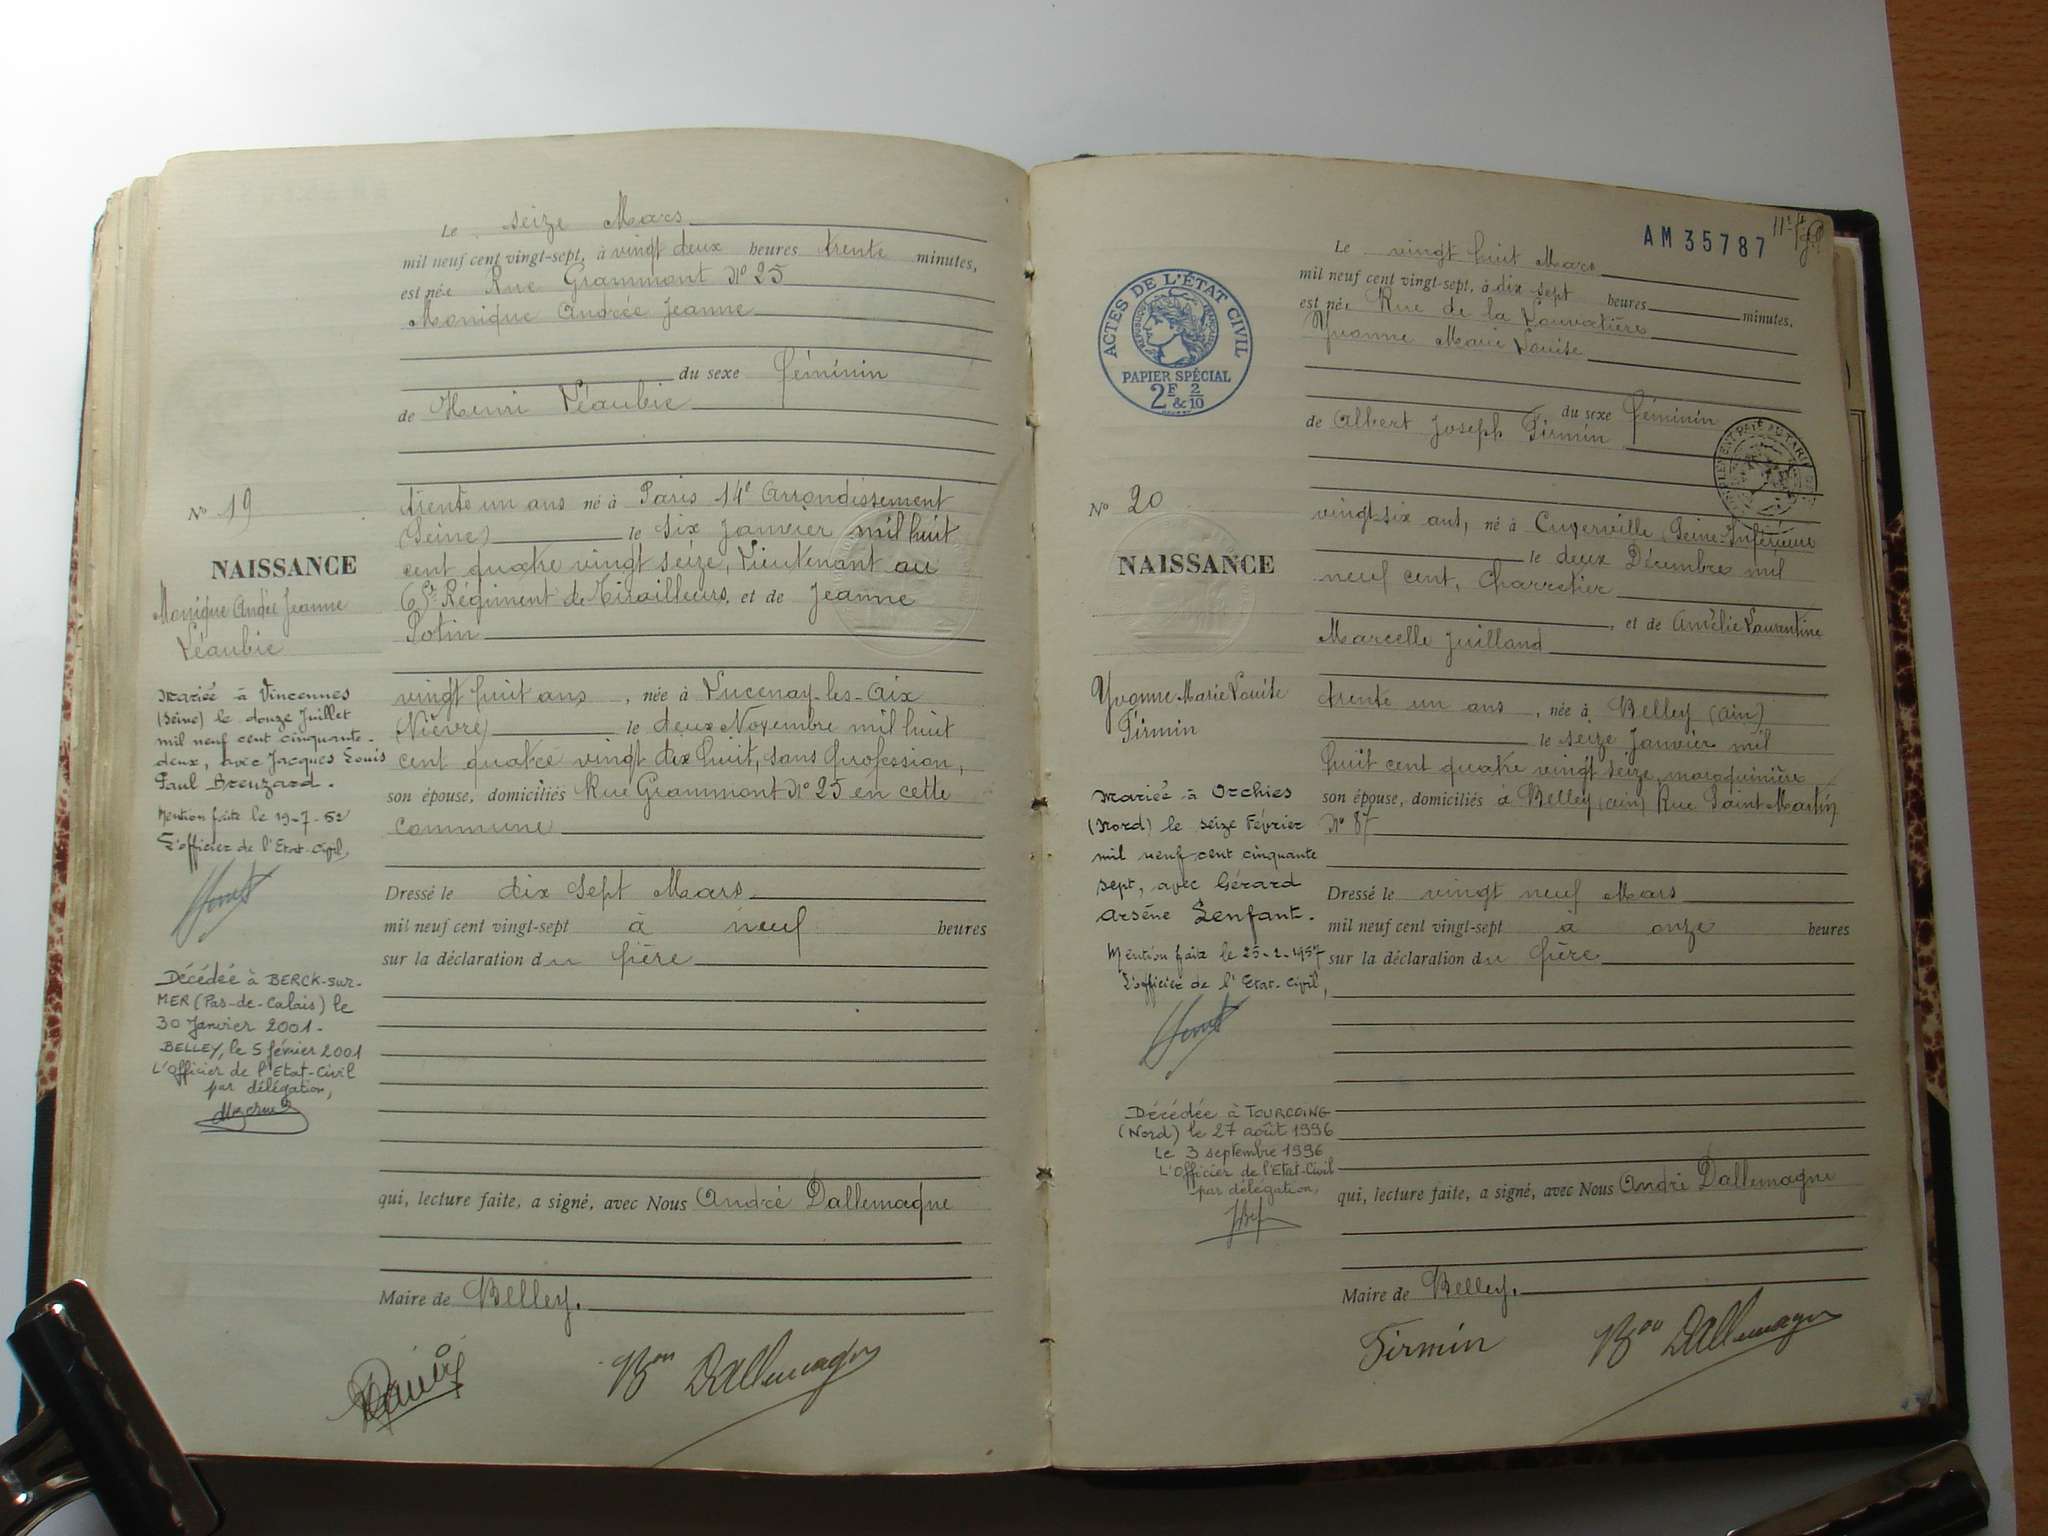 Le seize Mars
mil neuf cent vingt-sept, à vingt deux heures trente minutes,
est née Rue Grammont N° 25
Monique Andrée Jeanne
du sexe féminin
de Henri Léaubie
N° 19
NAISSANCE
Monique André Jeanne
Léaubie
Mariée à Vincennes
(Seine) le douze Juillet
mil neuf cent cinquante-
deux, avec Jacques Louis
Paul Breuzard.
Mention faite le 19-7-52
L'officier de l'Etat-Civil,
Décédée à BERCK-sur-
MER (Pas-de-Calais) le
30 Janvier 2001-
BELLEY, le 5 février 2001
L'Officier de l'Etat-Civil
par délégation,
trente un ans né à Paris 14e Arrondissement
(Seine) le six Janvier mil huit
cent quatre vingt seize, Lieutenant au
Régiment de Tirailleurs, et de Jeanne
Potin
vingt huit ans, née à Lucenay-les-Aix
(Nièvre) le deux Novembre mil huit
cent quatre vingt dix huit, sans profession,
son épouse, domiciliés Rue Grammont N° 25 en cette
commune
Dressé le dix sept Mars
mil neuf cent vingt-sept à neuf heures
sur la déclaration du père
qui, lecture faite, a signé, avec Nous André Dallemagne
Maire de Belley.
Bon Dallemagne
AM 35787
Le vingt huit Mars
mil neuf cent vingt-sept, à dix sept heures minutes,
est née Rue de la
Yvonne Marie Louise
du sexe féminin
de Albert Joseph Firmin
ACTES DE L'ÉTAT CIVIL
RÉPUBLIQUE FRANÇAISE
PAPIER SPÉCIAL
2F & 2/10
N° 20
NAISSANCE
Yvonne Marie Louise
Firmin
Mariée à Orchies
(Nord) le seize Février
mil neuf cent cinquante
sept, avec Gérard
Arsène Lenfant.
Mention faite le 25-2-1957
L'officier de l'Etat-Civil,
Décédée à TOURCOING
(Nord) le 27 août 1996
Le 3 septembre 1996
L'Officier de l'Etat-Civil
par délégation,
vingt-six ans, né à Cuverville (Seine-Inférieure
le deux Décembre mil
neuf cent, Charretier
et de Amélie Laurentine
Marcelle Juilland
trente un ans, née à Belley (Ain)
le seize Janvier mil
huit cent quatre vingt seize, maroquinière
son épouse, domiciliés à Belley (Ain) Rue Saint Martin
N° 87
Dressé le vingt neuf Mars
mil neuf cent vingt-sept à onze heures
sur la déclaration du père
qui, lecture faite, a signé, avec Nous André Dallemagne
Maire de Belley.
Firmin Bon Dallemagne